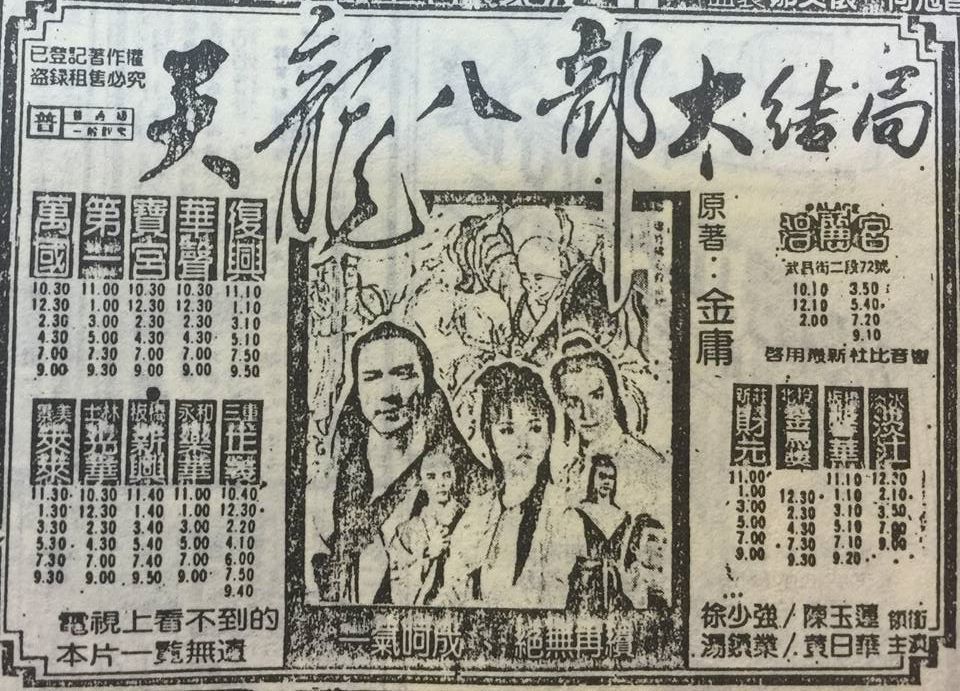 已登記著作權
盜録租售必究
普
天龍八部大結局
萬國 第一 寶宮 華聲 復興
10.30 11.00 10.30 10.30 11.10
12.30 1.00 12.30 12.30 1.10
2.30 3.00 2.30 2.30 3.10
4.30 5.00 4.30 4.30 5.10
7.00 7.30 7.00 7.00 7.50
9.00 9.30 9.00 9.00 9.50
景美 士林 板橋 永和 三重
來來 光華 新興 樂華
11.30 10.30 11.40 11.00 10.40
1.30 12.30 1.40 1.00 12.30
3.30 2.30 3.40 3.00 2.20
5.30 4.30 5.40 5.00 4.10
7.30 7.00 7.40 7.00 6.00
9.30 9.00 9.50 9.00 7.50
9.40
電視上看不到的
本片一覽無遺
一氣呵成 絕無再續
原著:金庸
PALACE
宮
武昌街二段72號
10.10 3.50
12.10 5.40
2.00 7.20
9.10
啓用最新杜比音響
新莊 北投 板橋 淡水
財元 淡江
11.00 12.30 11.10 12.30
1.00 2.30 1.10 2.10
3.00 4.30 3.10 3.50
5.00 7.30 5.10 7.00
7.00 9.30 7.10 9.00
9.00 9.20
徐少強/陳玉蓮 領銜
湯鎮業/黃日華 主演